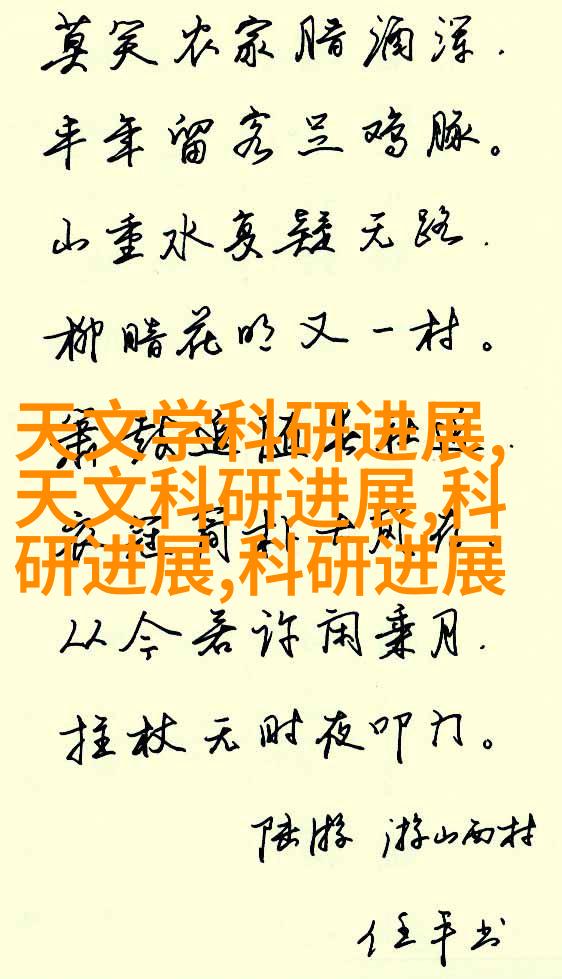 莫笑农家腊酒浑.
丰年留客足鸡豚。
山重水复疑无路.
柳暗花明又一村。
天文学科研进展,
追随
天文科研进展,科
研进展,科研进展
从今若许闲乘月.
拄杖无时夜叩门。
陆游 游山西村
任平书